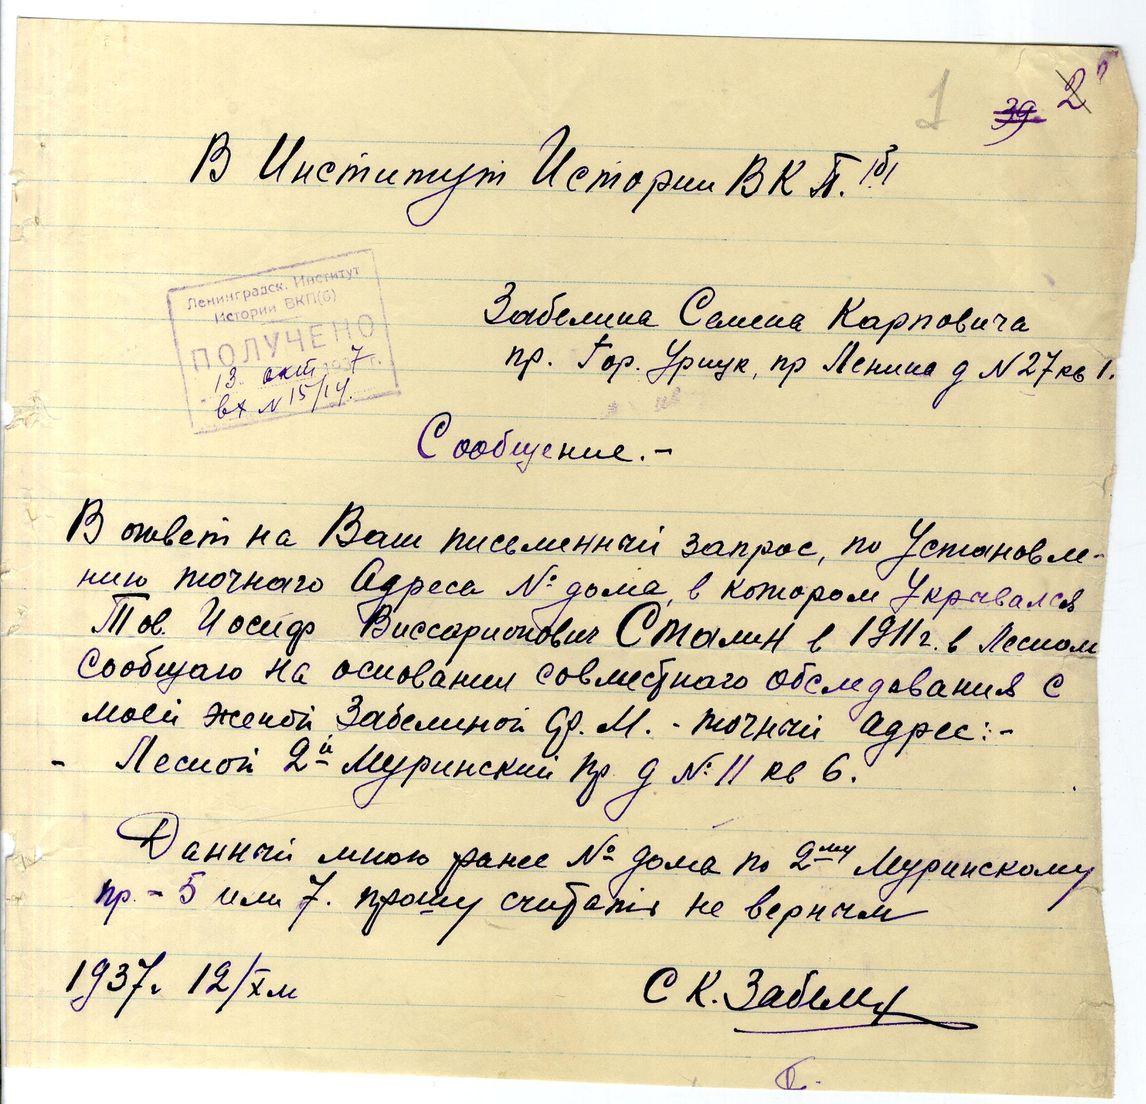 1
39 2
В Институт Истории ВКП.(б)
Ленинградск. Институт
Истории ВКП(б)
ПОЛУЧЕНО
13. окт 1937 г.
вх N 15/14.
Забелина Семена Карповича
пр. Гор. Урицк, пр Ленина д N 27 кв 1.
Сообщение.-
В ответ на Ваш письменный запрос, по Установле-
нию точнаго Адреса № дома, в котором Укрывался
Тов. Иосиф Виссарионович Сталин в 1911 г. в Лесном
сообщаю на основании совместнаго обследования с
моей женой Забелиной Ф. М. - точный Адрес:-
- Лесной 2й Муринский пр д № 11 кв 6.
Данный мною ранее № дома по 2му Муринскому
пр. - 5 или 7. прошу считать не верным
1937 г 12/X м
С К. Забелин